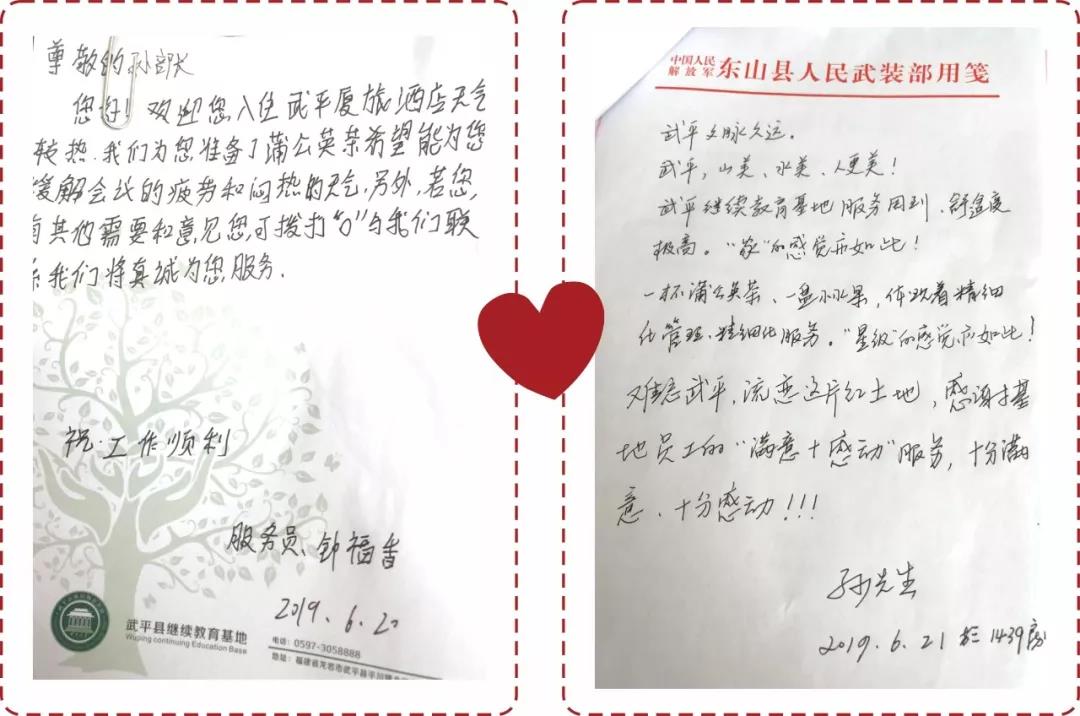 尊敬的孙部长
您好！欢迎您入住武平厦旅酒店天气
较热.我们为您准备了蒲公英茶希望能为您
缓解会议的疲劳和闷热的天气,另外,若您,
有其他需要和意见您,可拨打“0”与我们联
系我们将真诚为您服务.
祝.工作顺利
服务员、钟福香
2019.6.20
武平县继续教育基地
Wuping continuing Education Base
电话：0597-3058888
地址：福建省龙岩市武平县平川
中国人民解放军东山县人民武装部用笺
武平文脉久远。
武平,山美、水美、人更美！
武平继续教育基地服务周到、舒适度
极高。“家”的感觉亦如此！
一杯蒲公英茶、一盘小水果,体现着精细
化管理、精细化服务。“星级”的感觉亦如此！
难忘武平,流恋这片红土地,感谢才基
地员工的“满意十感动”服务,十分满
意、十分感动！！！
孙先生
2019.6.21于1439房